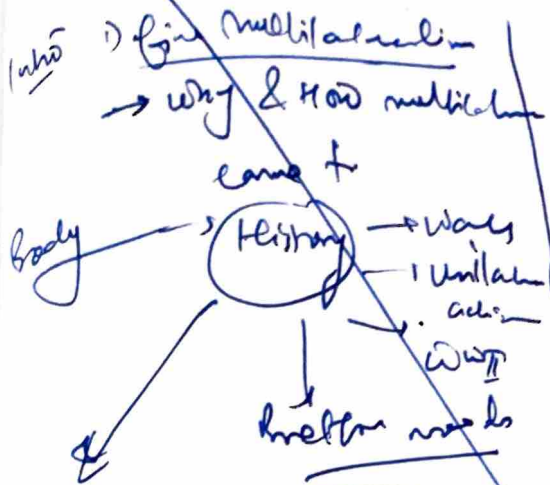 Intro 1) Define multilateralism
→ Why & How multilateralism
came t
Body → History → Wars
→ Unilateral
action
WW II
Bretton woods